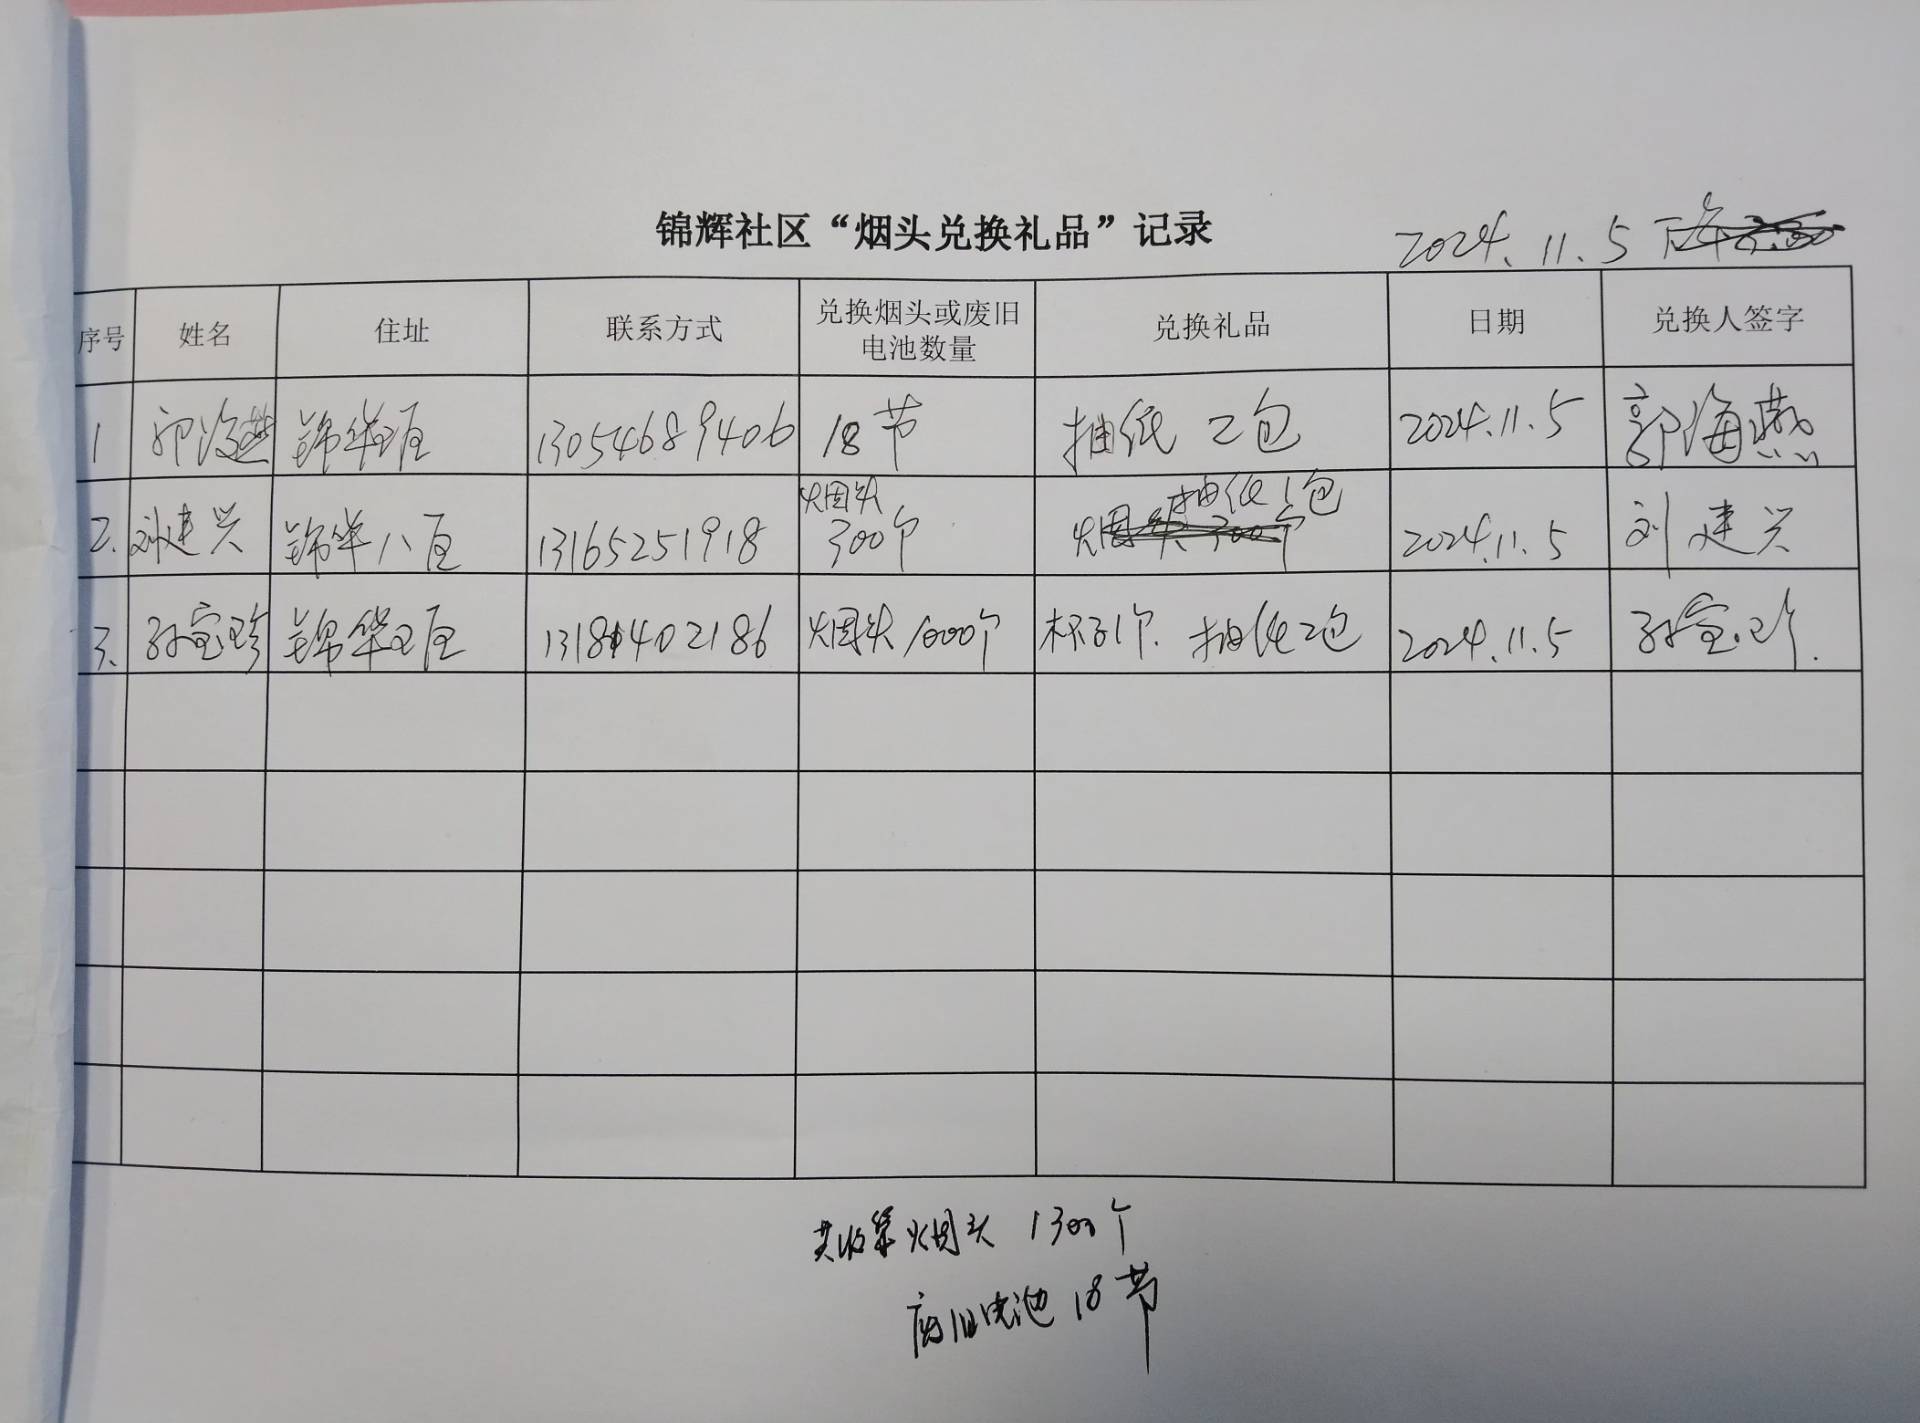 锦辉社区“烟头兑换礼品”记录
2024.11.5 下午
序号 姓名 住址 联系方式 兑换烟头或废旧电池数量 兑换礼品 日期 兑换人签字
1 郭海燕 锦华 13054689406 18节 抽纸 2包 2024.11.5 郭海燕
2. 刘建兴 锦华八区 13165251918 烟头 300个 抽纸1包 2024.11.5 刘建兴
3. 孙宝珍 锦华 13181402186 烟头1000个 杯子1个. 抽纸2包 2024.11.5 孙宝珍.
共收集烟头 1300个
废旧电池 18节